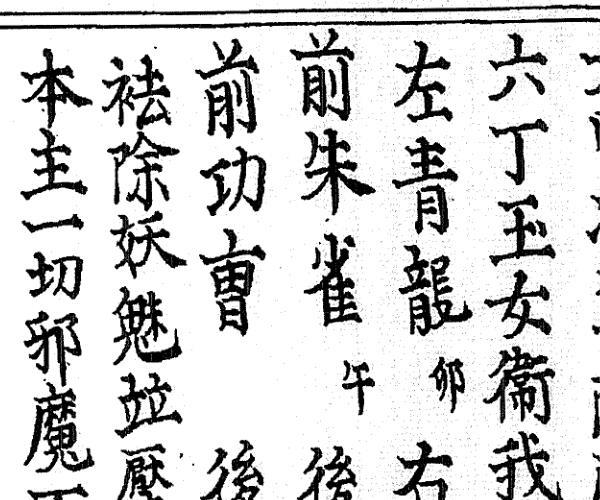 六丁玉女衞我
左青龍卯右
前朱雀午後
前功曹後
袪除妖魅並壓
本主一切邪魔